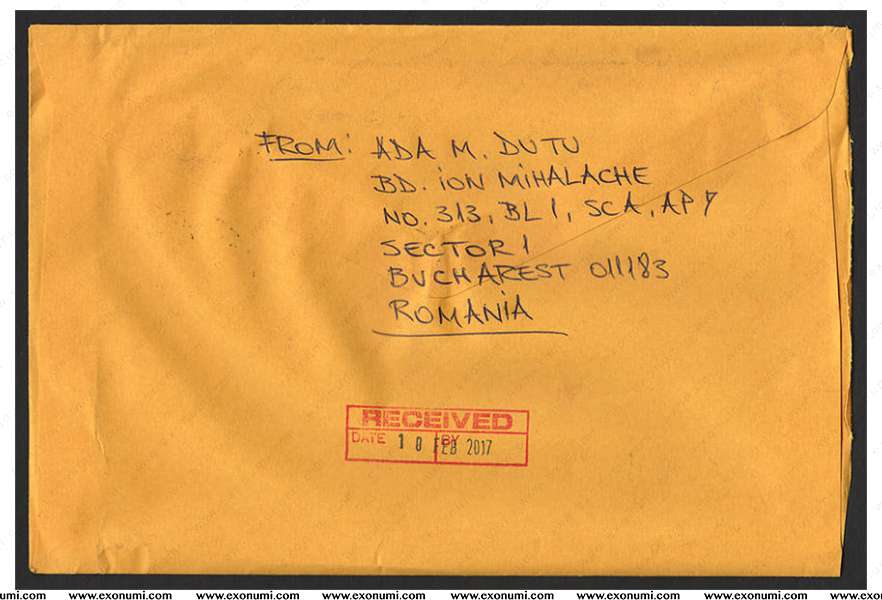 FROM: ADA M. DUTU
BD. ION MIHALACHE
NO. 313, BL 1, SCA, AP 7
SECTOR 1
BUCHAREST 011183
ROMANIA
RECEIVED
DATE 10 FEB 2017 BY
www.exonumi.com www.exonumi.com www.exonumi.com www.exonumi.com www.exonumi.com www.exonumi.com